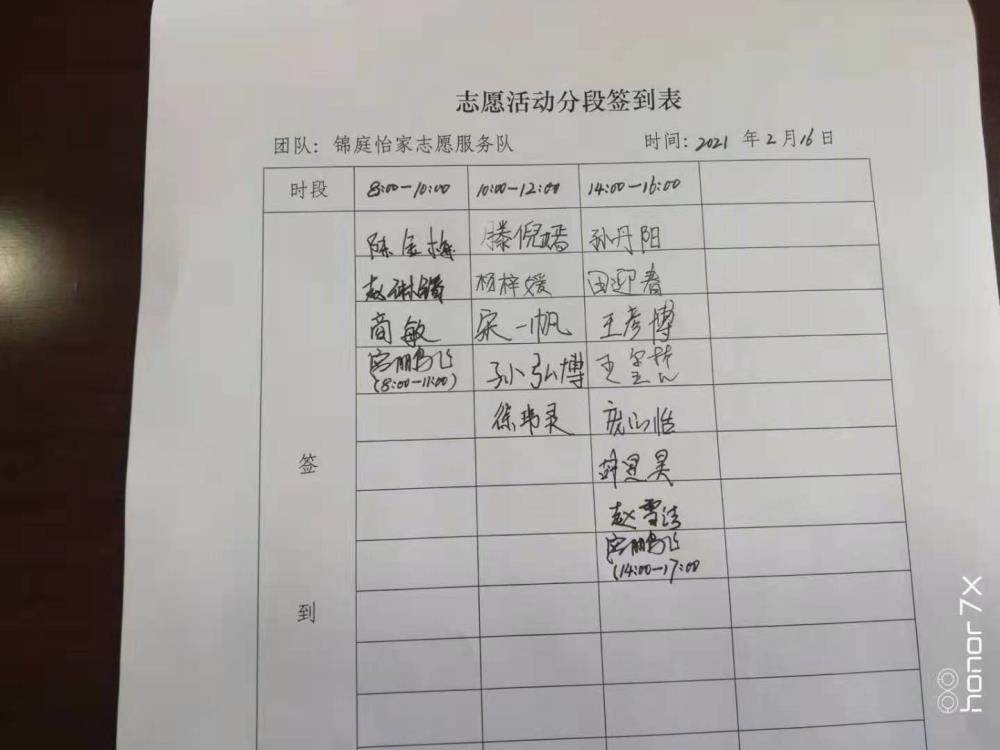 志愿活动分段签到表
团队：锦庭怡家志愿服务队 时间：2021 年 2 月 16 日
时段 8:00-10:00 10:00-12:00 14:00-16:00
陈金梅 滕倪嫱 孙丹阳
杨梓媛 田迎春
商敏 宋一帆 王彦博
宫鹏飞 孙弘博 王
(8:00-11:00)
徐玮灵 庞心怡
签
昊
赵雪洁
宫鹏飞
(14:00-17:00
到
honor 7X